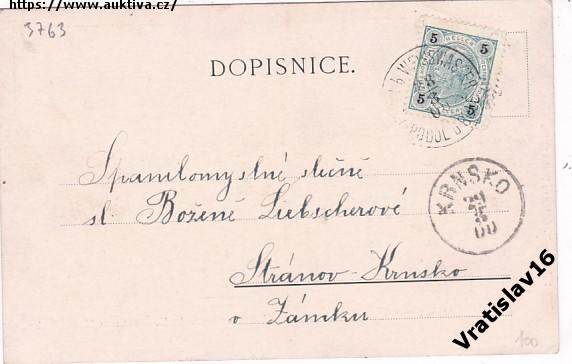 https://www.auktiva.cz/
3763
DOPISNICE.
5 5
HELLER
5 5
WEISSWASSER
PODOL
Spanilomyslné slečně
sl. Boženě Liebscherové
KRNSKO
Stránov-Krnsko
v Zámku
100
Vratislav16